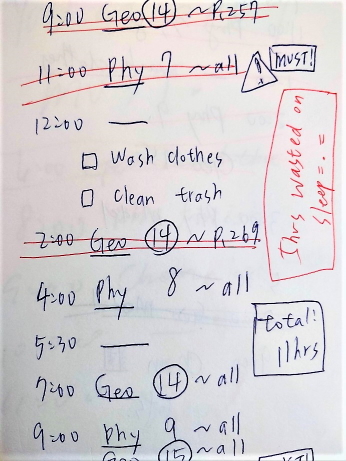 9:00 Geo 14 ~ P.257
11:00 Phy 7 ~ all ! MUST!
12:00 —
1hrs wasted on
sleep =.=
□ Wash clothes
□ Clean trash
2:00 Geo 14 ~ P.269
4:00 Phy 8 ~ all
total!
11hrs
5:30 —
7:00 Geo 14 ~ all
9:00 Phy 9 ~ all
Geo 15 ~ all